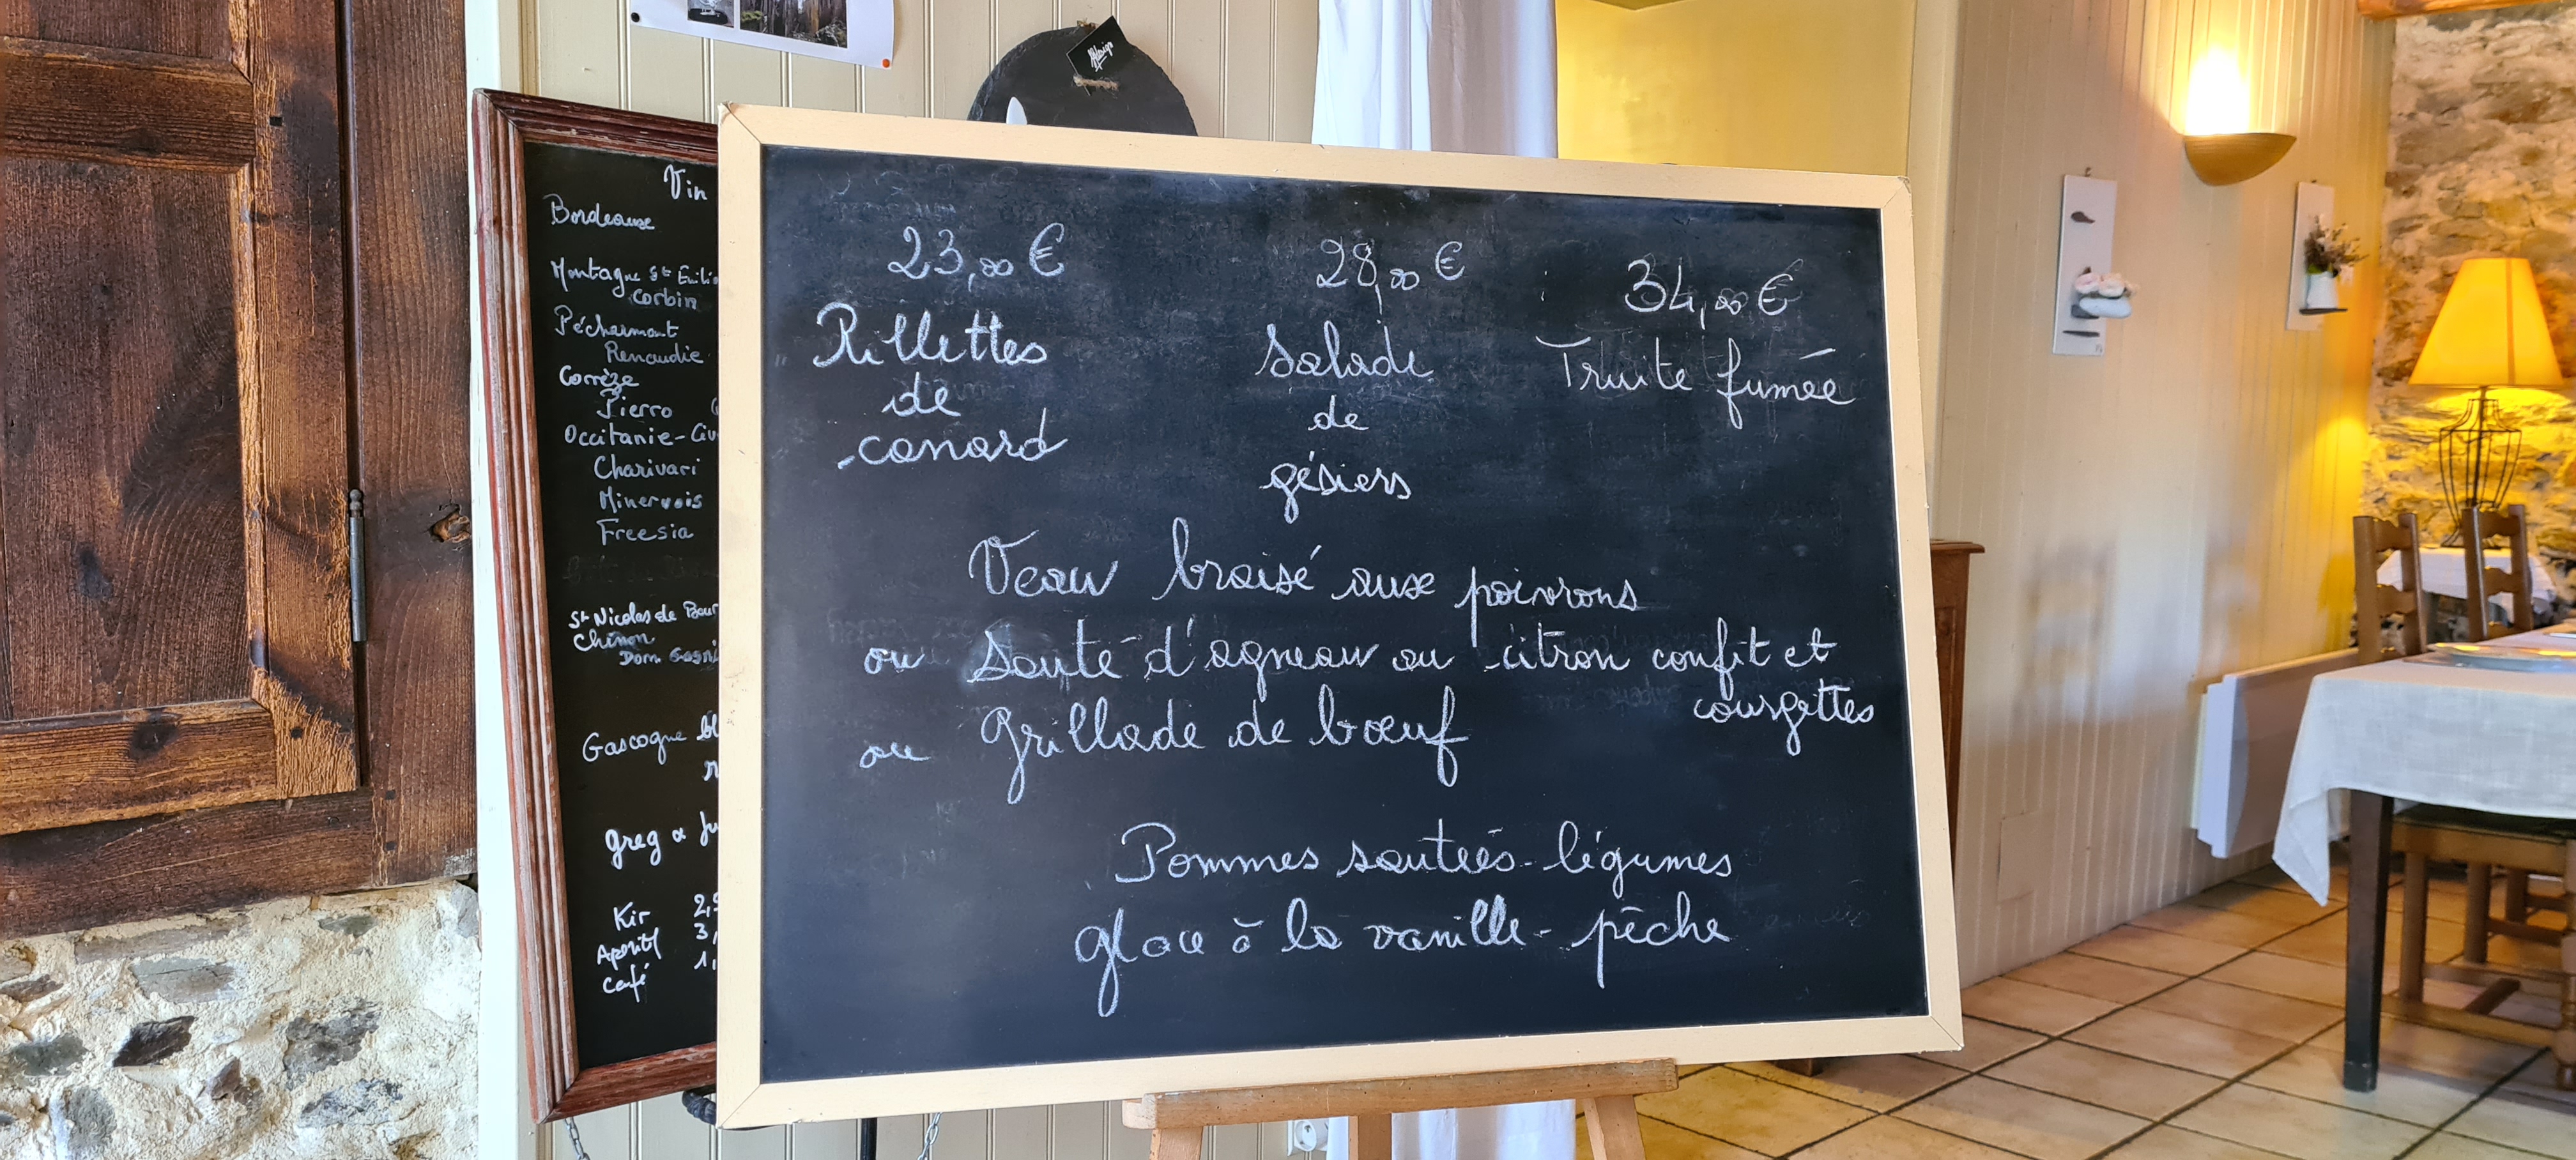 Vin
Bordeaux
Montagne St Emilio
Corbin
Pécharmant
Renaudie
Corrèze
Pierro
Occitanie-
Charivari
Minervois
Freesia
St Nicolas de Bour
Chinon
Dom
Gascogne bl
r
Greg & Ju
Kir 2,
Apéritif 3,
Café 1,
23,00 € 28,00 € 34,00 €
Rillettes
de
canard
Salade
de
gésiers
Truite fumée
Veau braisé aux poivrons
ou Sauté d'agneau au citron confit et
courgettes
ou Grillade de bœuf
Pommes sautées - légumes
glace à la vanille - pêche